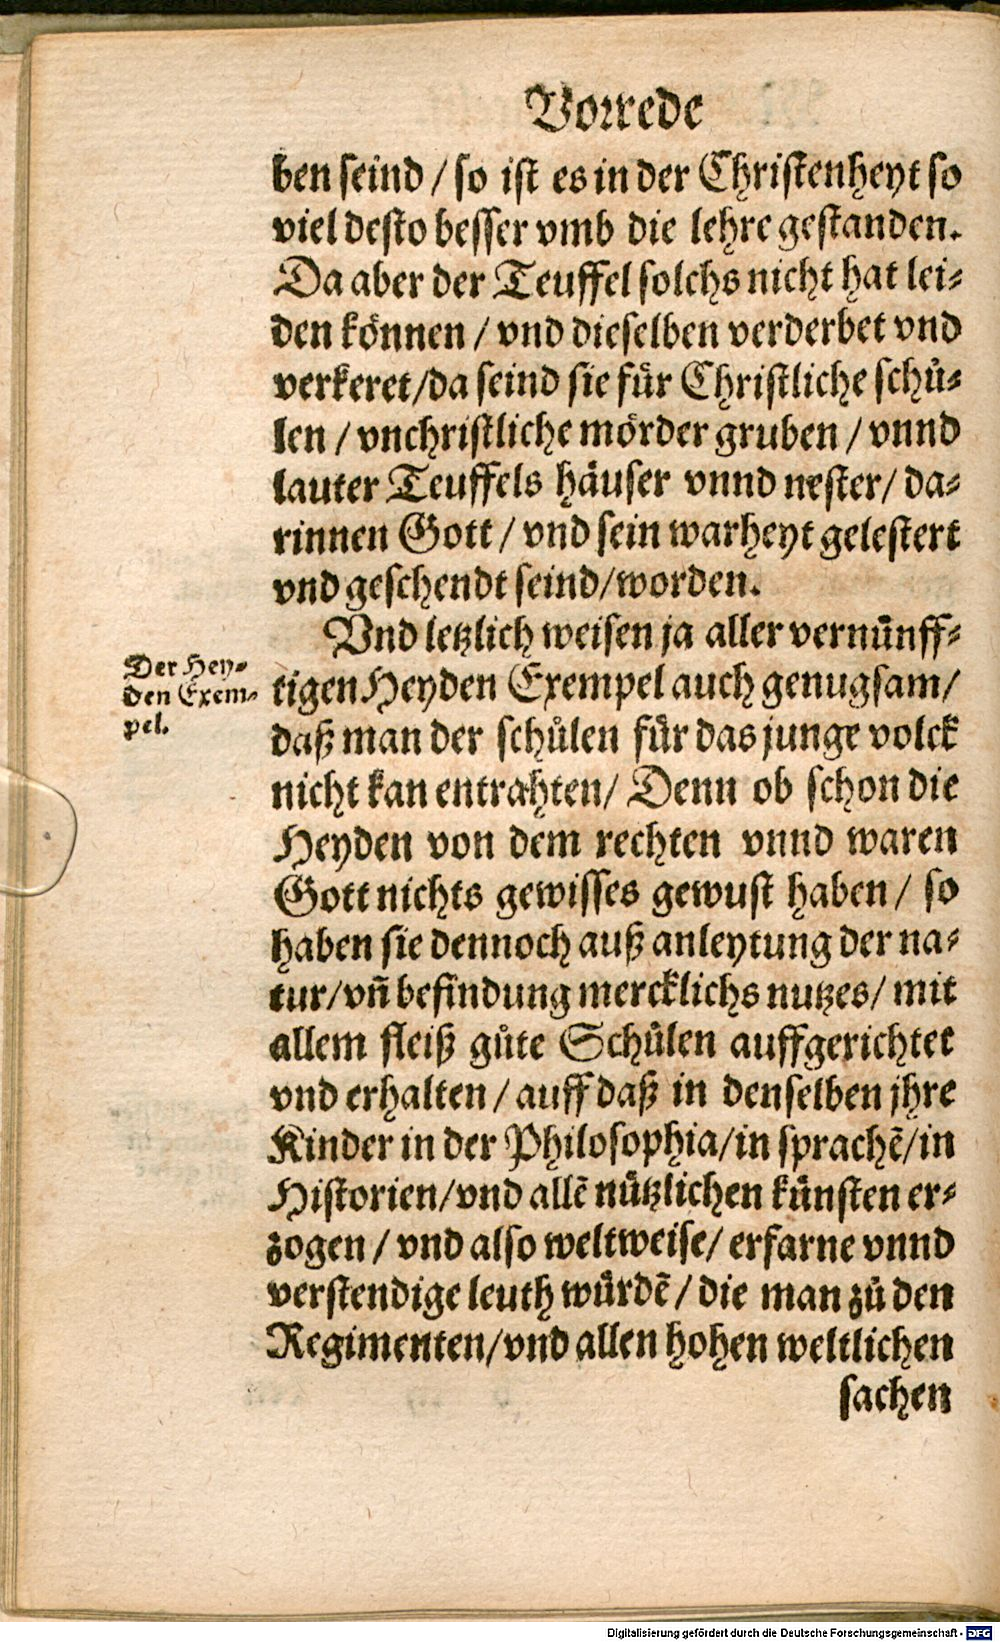 Vorrede
ben seind / so ist es in der Christenheyt so
viel desto besser vmb die lehre gestanden.
Da aber der Teuffel solchs nicht hat lei-
den können / vnd dieselben verderbet vnd
verkeret/da seind sie für Christliche schů-
len / vnchristliche mörder gruben / vnnd
lauter Teuffels häuser vnnd nester/ da-
rinnen Gott / vnd sein warheyt gelestert
vnd geschendt seind/worden.
Vnd letzlich weisen ja aller vernünff-
Der Hey-
den Exem-
pel.
tigen Heyden Exempel auch genugsam/
daß man der schůlen für das junge volck
nicht kan entrahten/ Denn ob schon die
Heyden von dem rechten vnnd waren
Gott nichts gewisses gewust haben/ so
haben sie dennoch auß anleytung der na-
tur/vñ befindung mercklichs nutzes/ mit
allem fleiß gůte Schůlen auffgerichtet
vnd erhalten / auff daß in denselben jhre
Kinder in der Philosophia/in sprachẽ/in
Historien/vnd allẽ nützlichen künsten er-
zogen / vnd also weltweise/ erfarne vnnd
verstendige leuth würdẽ / die man zů den
Regimenten/vnd allen hohen weltlichen
sachen
Digitalisierung gefördert durch die Deutsche Forschungsgemeinschaft - DFG